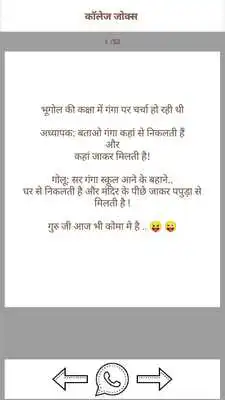 कॉलेज जोक्स
1 /52
भूगोल की कक्षा में गंगा पर चर्चा हो रही थी
अध्यापक: बताओ गंगा कहां से निकलती हैं
और
कहां जाकर मिलती है!
गोलू: सर गंगा स्कूल आने के बहाने..
घर से निकलती है और मंदिर के पीछे जाकर पपुड़ा से
मिलती है !
गुरु जी आज भी कोमा मे है .. 😝 😝